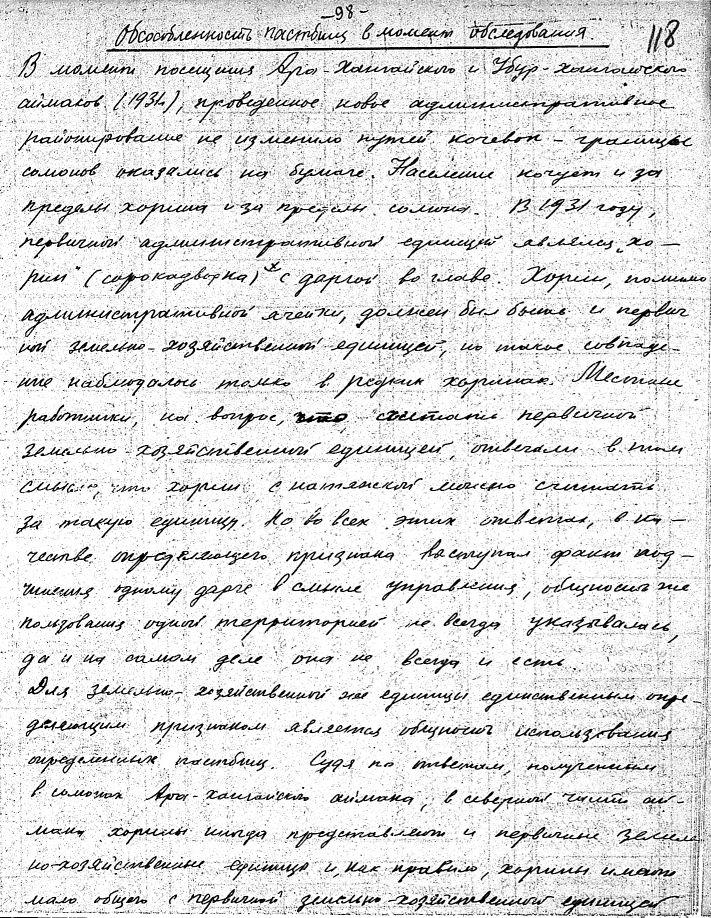 -98-
Обособленность пастбищ в момент обследования.
118
В момент посещения Ара-Хангайского и Убур-хангайского
аймаков (1931), проведенное новое административное
районирование не изменило путей кочевок – границы
сомонов оказались на бумаге. Население кочует и за
пределы хорина и за пределы сомона. В 1931 году,
первичной административной единицей являлся „хо-
рин" (сорокадворка)* с даргой во главе. Хорин, помимо
административной ячейки, должен был быть и первич
ной земельно-хозяйственной единицей, но такое совпаде-
ние наблюдалось только в редких хоринах. Местные
работники, на вопрос, что считать первичной
земельно хозяйственной единицей, отвечали в том
смысле, что хорин с натяжкой можно считать
за такую единицу. Но во всех этих ответах, в ка-
честве определяющего признака выступал факт под-
чинения одному дарге в смысле управления, общность же
пользования одной территорией не всегда указывалась,
да и на самом деле она не всегда и есть.
Для земельно-хозяйственной же единицы единственным опре-
деляющим признаком является общность использования
определенных пастбищ. Судя по ответам, полученным
в сомонах Ара-хангайского аймака, в северной части ай-
мака хорины иногда представляют и первичные земель
но-хозяйственные единицы и, как правило, хорины имеют
мало общего с первичной земельно-хозяйственной единицей